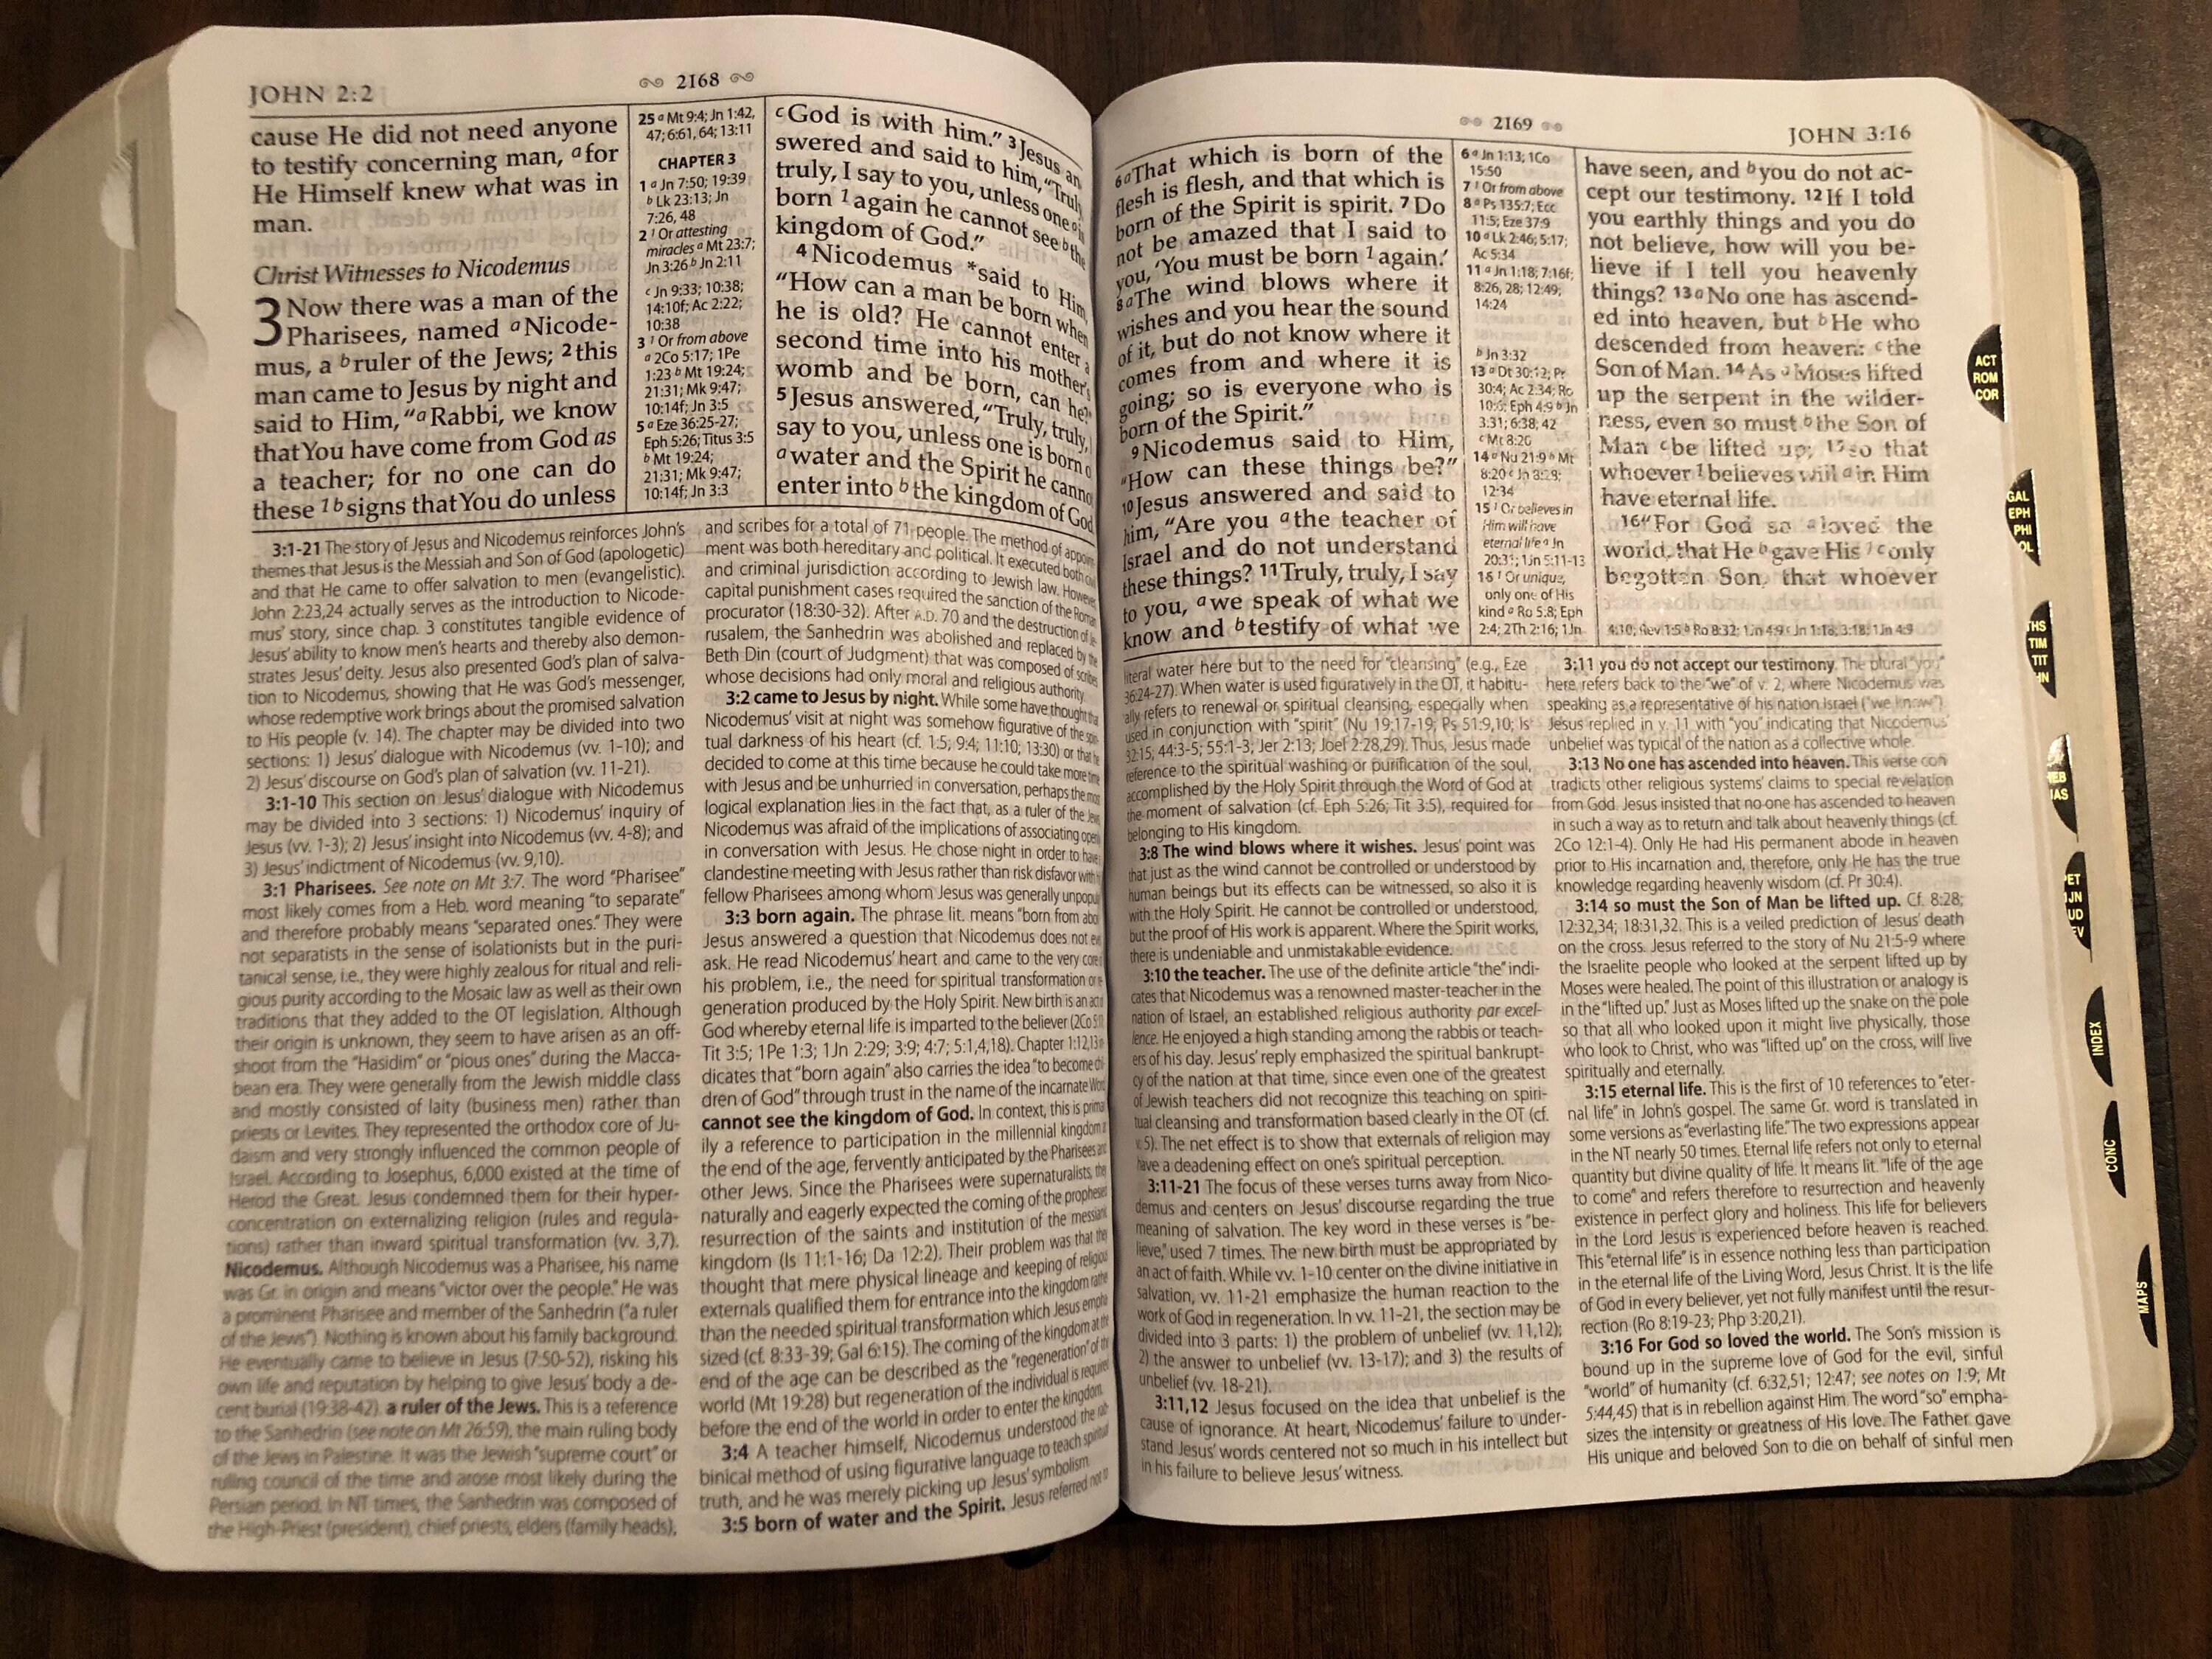 JOHN 2:2
2168
cause He did not need anyone
to testify concerning man, a for
He Himself knew what was in
man.
Christ Witnesses to Nicodemus
3 Now there was a man of the
Pharisees, named a Nicode-
mus, a b ruler of the Jews; 2 this
man came to Jesus by night and
said to Him, “a Rabbi, we know
that You have come from God as
a teacher; for no one can do
these 1 b signs that You do unless
25 a Mt 9:4; Jn 1:42,
47; 6:61, 64; 13:11
CHAPTER 3
1 a Jn 7:50; 19:39
b Lk 23:13; Jn
7:26, 48
2 1 Or attesting
miracles a Mt 23:7;
Jn 3:26 b Jn 2:11
c Jn 9:33; 10:38;
14:10f; Ac 2:22;
10:38
3 1 Or from above
a 2Co 5:17; 1Pe
1:23 b Mt 19:24;
21:31; Mk 9:47;
10:14f; Jn 3:5
5 a Eze 36:25-27;
Eph 5:26; Titus 3:5
b Mt 19:24;
21:31; Mk 9:47;
10:14f; Jn 3:3
c God is with him.” 3 Jesus an
swered and said to him, “Truly,
truly, I say to you, unless one a is
born 1 again he cannot see b the
kingdom of God.”
4 Nicodemus *said to Him,
“How can a man be born when
he is old? He cannot enter a
second time into his mother’s
womb and be born, can he?”
5 Jesus answered, “Truly, truly, I
say to you, unless one is born o
a water and the Spirit he canno
enter into b the kingdom of God
3:1-21 The story of Jesus and Nicodemus reinforces John’s
themes that Jesus is the Messiah and Son of God (apologetic)
and that He came to offer salvation to men (evangelistic).
John 2:23,24 actually serves as the introduction to Nicode-
mus’ story, since chap. 3 constitutes tangible evidence of
Jesus’ ability to know men’s hearts and thereby also demon-
strates Jesus’ deity. Jesus also presented God’s plan of salva-
tion to Nicodemus, showing that He was God’s messenger,
whose redemptive work brings about the promised salvation
to His people (v. 14). The chapter may be divided into two
sections: 1) Jesus’ dialogue with Nicodemus (vv. 1-10); and
2) Jesus’ discourse on God’s plan of salvation (vv. 11-21).
3:1-10 This section on Jesus’ dialogue with Nicodemus
may be divided into 3 sections: 1) Nicodemus’ inquiry of
Jesus (vv. 1-3); 2) Jesus’ insight into Nicodemus (vv. 4-8); and
3) Jesus’ indictment of Nicodemus (vv. 9,10).
3:1 Pharisees. See note on Mt 3:7. The word “Pharisee”
most likely comes from a Heb. word meaning “to separate”
and therefore probably means “separated ones.” They were
not separatists in the sense of isolationists but in the puri-
tanical sense, i.e., they were highly zealous for ritual and reli-
gious purity according to the Mosaic law as well as their own
traditions that they added to the OT legislation. Although
their origin is unknown, they seem to have arisen as an off-
shoot from the “Hasidim” or “pious ones” during the Macca-
bean era. They were generally from the Jewish middle class
and mostly consisted of laity (business men) rather than
priests or Levites. They represented the orthodox core of Ju-
daism and very strongly influenced the common people of
Israel. According to Josephus, 6,000 existed at the time of
Herod the Great. Jesus condemned them for their hyper-
concentration on externalizing religion (rules and regula-
tions) rather than inward spiritual transformation (vv. 3,7).
Nicodemus. Although Nicodemus was a Pharisee, his name
was Gr. in origin and means “victor over the people.” He was
a prominent Pharisee and member of the Sanhedrin (“a ruler
of the Jews”). Nothing is known about his family background.
He eventually came to believe in Jesus (7:50-52), risking his
own life and reputation by helping to give Jesus’ body a de-
cent burial (19:38-42). a ruler of the Jews. This is a reference
to the Sanhedrin (see note on Mt 26:59), the main ruling body
of the Jews in Palestine. It was the Jewish “supreme court” or
ruling council of the time and arose most likely during the
Persian period. In NT times, the Sanhedrin was composed of
the High-Priest (president), chief priests, elders (family heads),
and scribes for a total of 71 people. The method of appoint-
ment was both hereditary and political. It executed both civil
and criminal jurisdiction according to Jewish law. However,
capital punishment cases required the sanction of the Roman
procurator (18:30-32). After A.D. 70 and the destruction of Je-
rusalem, the Sanhedrin was abolished and replaced by the
Beth Din (court of Judgment) that was composed of scribes
whose decisions had only moral and religious authority.
3:2 came to Jesus by night. While some have thought that
Nicodemus’ visit at night was somehow figurative of the spiri-
tual darkness of his heart (cf. 1:5; 9:4; 11:10; 13:30) or that he
decided to come at this time because he could take more time
with Jesus and be unhurried in conversation, perhaps the most
logical explanation lies in the fact that, as a ruler of the Jews
Nicodemus was afraid of the implications of associating openly
in conversation with Jesus. He chose night in order to have
clandestine meeting with Jesus rather than risk disfavor with h
fellow Pharisees among whom Jesus was generally unpopu
3:3 born again. The phrase lit. means “born from abo
Jesus answered a question that Nicodemus does not ev
ask. He read Nicodemus’ heart and came to the very core
his problem, i.e., the need for spiritual transformation or re
generation produced by the Holy Spirit. New birth is an act
God whereby eternal life is imparted to the believer (2Co 5:17
Tit 3:5; 1Pe 1:3; 1Jn 2:29; 3:9; 4:7; 5:1,4,18). Chapter 1:12,13 in
dicates that “born again” also carries the idea “to become chil
dren of God” through trust in the name of the incarnate Word
cannot see the kingdom of God. In context, this is primar
ily a reference to participation in the millennial kingdom at
the end of the age, fervently anticipated by the Pharisees and
other Jews. Since the Pharisees were supernaturalists, they
naturally and eagerly expected the coming of the prophesied
resurrection of the saints and institution of the messianic
kingdom (Is 11:1-16; Da 12:2). Their problem was that they
thought that mere physical lineage and keeping of religious
externals qualified them for entrance into the kingdom rather
than the needed spiritual transformation which Jesus empha
sized (cf. 8:33-39; Gal 6:15). The coming of the kingdom at the
end of the age can be described as the “regeneration” of the
world (Mt 19:28) but regeneration of the individual is required
before the end of the world in order to enter the kingdom.
3:4 A teacher himself, Nicodemus understood the rab
binical method of using figurative language to teach spiritual
truth, and he was merely picking up Jesus’ symbolism.
3:5 born of water and the Spirit. Jesus referred not to
2169
JOHN 3:16
6 a That which is born of the
flesh is flesh, and that which is
born of the Spirit is spirit. 7 Do
not be amazed that I said to
you, ‘You must be born 1 again.’
8 a The wind blows where it
wishes and you hear the sound
of it, but do not know where it
comes from and where it is
going; so is everyone who is
born of the Spirit.”
9 Nicodemus said to Him,
“How can these things be?”
10 Jesus answered and said to
him, “Are you a the teacher of
Israel and do not understand
these things? 11 Truly, truly, I say
to you, a we speak of what we
know and b testify of what we
6 a Jn 1:13; 1Co
15:50
7 1 Or from above
8 a Ps 135:7; Ecc
11:5; Eze 37:9
10 a Lk 2:46; 5:17;
Ac 5:34
11 a Jn 1:18; 7:16f;
8:26, 28; 12:49;
14:24
b Jn 3:32
13 a Dt 30:12; Pr
30:4; Ac 2:34; Ro
10:6; Eph 4:9 b Jn
3:31; 6:38, 42
c Mt 8:20
14 a Nu 21:9 b Mt
8:20 c Jn 8:28;
12:34
15 1 Or believes in
Him will have
eternal life a Jn
20:31; 1Jn 5:11-13
16 1 Or unique,
only one of His
kind a Ro 5:8; Eph
2:4; 2Th 2:16; 1Jn
have seen, and b you do not ac-
cept our testimony. 12 If I told
you earthly things and you do
not believe, how will you be-
lieve if I tell you heavenly
things? 13 a No one has ascend-
ed into heaven, but b He who
descended from heaven: c the
Son of Man. 14 As a Moses lifted
up the serpent in the wilder-
ness, even so must b the Son of
Man c be lifted up; 15 so that
whoever 1 believes will a in Him
have eternal life.
16 “For God so a loved the
world, that He b gave His 1 c only
begotten Son, that whoever
4:10; Rev 1:5 b Ro 8:32; 1Jn 4:9 c Jn 1:18; 3:18; 1Jn 4:9
literal water here but to the need for “cleansing” (e.g., Eze
36:24-27). When water is used figuratively in the OT, it habitu-
ally refers to renewal or spiritual cleansing, especially when
used in conjunction with “spirit” (Nu 19:17-19; Ps 51:9,10; Is
32:15; 44:3-5; 55:1-3; Jer 2:13; Joel 2:28,29). Thus, Jesus made
reference to the spiritual washing or purification of the soul,
accomplished by the Holy Spirit through the Word of God at
the moment of salvation (cf. Eph 5:26; Tit 3:5), required for
belonging to His kingdom.
3:8 The wind blows where it wishes. Jesus’ point was
that just as the wind cannot be controlled or understood by
human beings but its effects can be witnessed, so also it is
with the Holy Spirit. He cannot be controlled or understood,
but the proof of His work is apparent. Where the Spirit works,
there is undeniable and unmistakable evidence.
3:10 the teacher. The use of the definite article “the” indi-
cates that Nicodemus was a renowned master-teacher in the
nation of Israel, an established religious authority par excel-
lence. He enjoyed a high standing among the rabbis or teach-
ers of his day. Jesus’ reply emphasized the spiritual bankrupt-
cy of the nation at that time, since even one of the greatest
of Jewish teachers did not recognize this teaching on spiri-
tual cleansing and transformation based clearly in the OT (cf.
v. 5). The net effect is to show that externals of religion may
have a deadening effect on one’s spiritual perception.
3:11-21 The focus of these verses turns away from Nico-
demus and centers on Jesus’ discourse regarding the true
meaning of salvation. The key word in these verses is “be-
lieve,” used 7 times. The new birth must be appropriated by
an act of faith. While vv. 1-10 center on the divine initiative in
salvation, vv. 11-21 emphasize the human reaction to the
work of God in regeneration. In vv. 11-21, the section may be
divided into 3 parts: 1) the problem of unbelief (vv. 11,12);
2) the answer to unbelief (vv. 13-17); and 3) the results of
unbelief (vv. 18-21).
3:11,12 Jesus focused on the idea that unbelief is the
cause of ignorance. At heart, Nicodemus’ failure to under-
stand Jesus’ words centered not so much in his intellect but
in his failure to believe Jesus’ witness.
3:11 you do not accept our testimony. The plural “you”
here refers back to the “we” of v. 2, where Nicodemus was
speaking as a representative of his nation Israel (“we know”).
Jesus replied in v. 11 with “you” indicating that Nicodemus’
unbelief was typical of the nation as a collective whole.
3:13 No one has ascended into heaven. This verse con
tradicts other religious systems’ claims to special revelation
from God. Jesus insisted that no one has ascended to heaven
in such a way as to return and talk about heavenly things (cf.
2Co 12:1-4). Only He had His permanent abode in heaven
prior to His incarnation and, therefore, only He has the true
knowledge regarding heavenly wisdom (cf. Pr 30:4).
3:14 so must the Son of Man be lifted up. Cf. 8:28;
12:32,34; 18:31,32. This is a veiled prediction of Jesus’ death
on the cross. Jesus referred to the story of Nu 21:5-9 where
the Israelite people who looked at the serpent lifted up by
Moses were healed. The point of this illustration or analogy is
in the “lifted up.” Just as Moses lifted up the snake on the pole
so that all who looked upon it might live physically, those
who look to Christ, who was “lifted up” on the cross, will live
spiritually and eternally.
3:15 eternal life. This is the first of 10 references to “eter-
nal life” in John’s gospel. The same Gr. word is translated in
some versions as “everlasting life.” The two expressions appear
in the NT nearly 50 times. Eternal life refers not only to eternal
quantity but divine quality of life. It means lit. “life of the age
to come” and refers therefore to resurrection and heavenly
existence in perfect glory and holiness. This life for believers
in the Lord Jesus is experienced before heaven is reached.
This “eternal life” is in essence nothing less than participation
in the eternal life of the Living Word, Jesus Christ. It is the life
of God in every believer, yet not fully manifest until the resur-
rection (Ro 8:19-23; Php 3:20,21).
3:16 For God so loved the world. The Son’s mission is
bound up in the supreme love of God for the evil, sinful
“world” of humanity (cf. 6:32,51; 12:47; see notes on 1:9; Mt
5:44,45) that is in rebellion against Him. The word “so” empha-
sizes the intensity or greatness of His love. The Father gave
His unique and beloved Son to die on behalf of sinful men
ACT
ROM
COR
GAL
EPH
PHI
OL
THS
TIM
TIT
HN
EB
AS
ET
JN
UD
EV
INDEX
CONC
MAPS